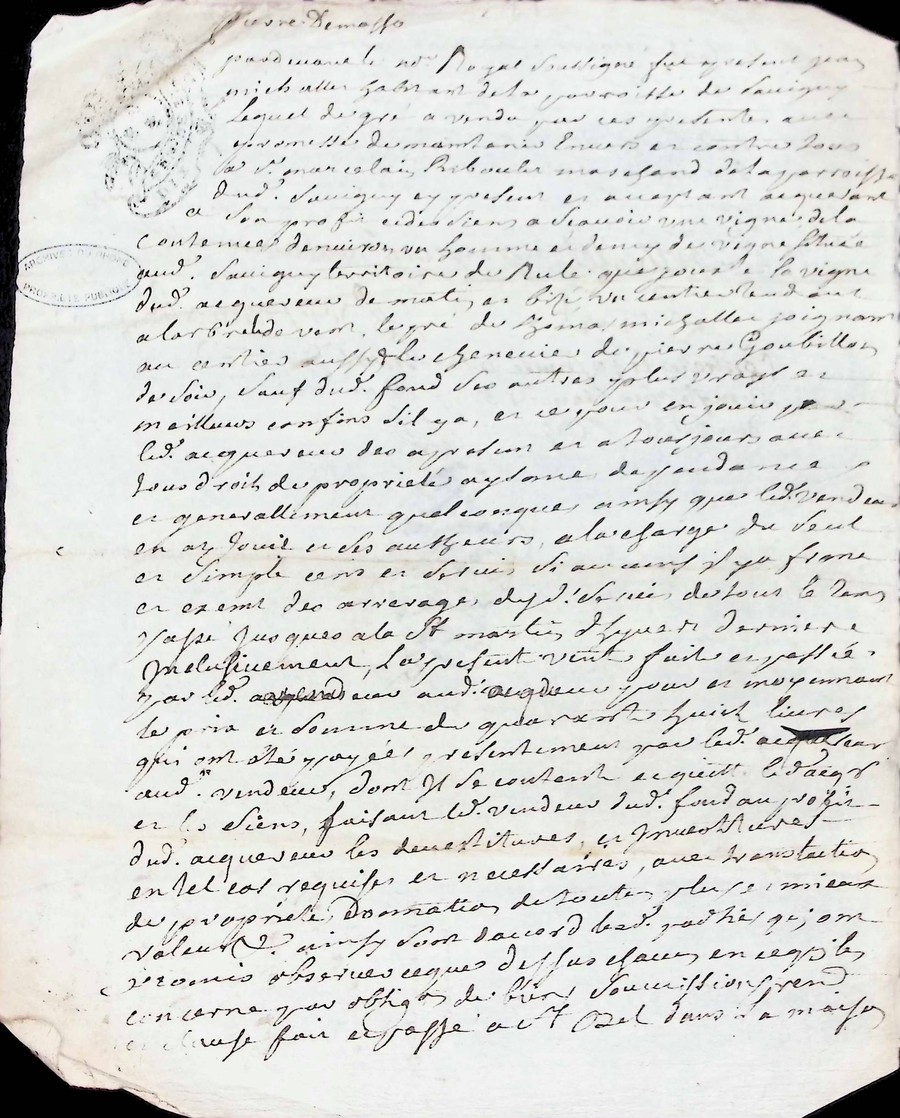 pierre Demasso
pardevant le no.re Royal soussigné fut present jean
michallet habitant de la parroisse de Savigny
Lequel de gré a vendu par ces presentes avec
promesse de maintenir Envers et contre tous
a Sr. marcelain Reboulet marchand de la parroisse
dud. Savigny cy present et acceptant acquerant
a Son profit et des siens a Scavoir une vigne de la
contenue denviron un homme et demy de vigne Située
aud. Savigny territoire de Rule que jouxte la vigne
dud. acquereur de matin et bize un centier tendant
a larbresle de vent le pré de Thomas michallet joignant
au centier aussy & le chenevier de pierre Goubillon
de soir, Sauf dud. fond Ses autres plus vrays et
meilleurs confins S'il y a, et ce pour en jouir par
led. acquereur des apresent et a tousjours avec
tous droits de propriété aysance dependance
et generallement quelconques ainsy que led. vendeur
en a Jouit et Ses autheurs, a la charge du Seul
et Simple cens et Servis Si aucuns il y a franc
et exempt des arrerages dud. Servis de tout le tems
passé Jusques a la St martin d'hyvert derniere
Inclusivement, La presente vente faite et passée
par led. vendeur aud. acquereur pour et moyennant
le prix et Somme de quarante huit livres
qui ont été payées presentement par led. acquereur
aud. vendeur, dont Il Se contente et quitte led. acqr
et les Siens, faisant led. vendeur dud. fond au profit
dud. acquereur les devestitures, et Investitures
en tel cas requises et necessaires, avec translation
de propriété, Donnation de toutes plus et mieux
valeur &. ainsy Sont d'accord lesd. parties qui ont
promis observer ce que dessus chacun en ce qui les
concerne par obligon de biens Soumissions rend
et clause fait et passé a St Bel dans la maison